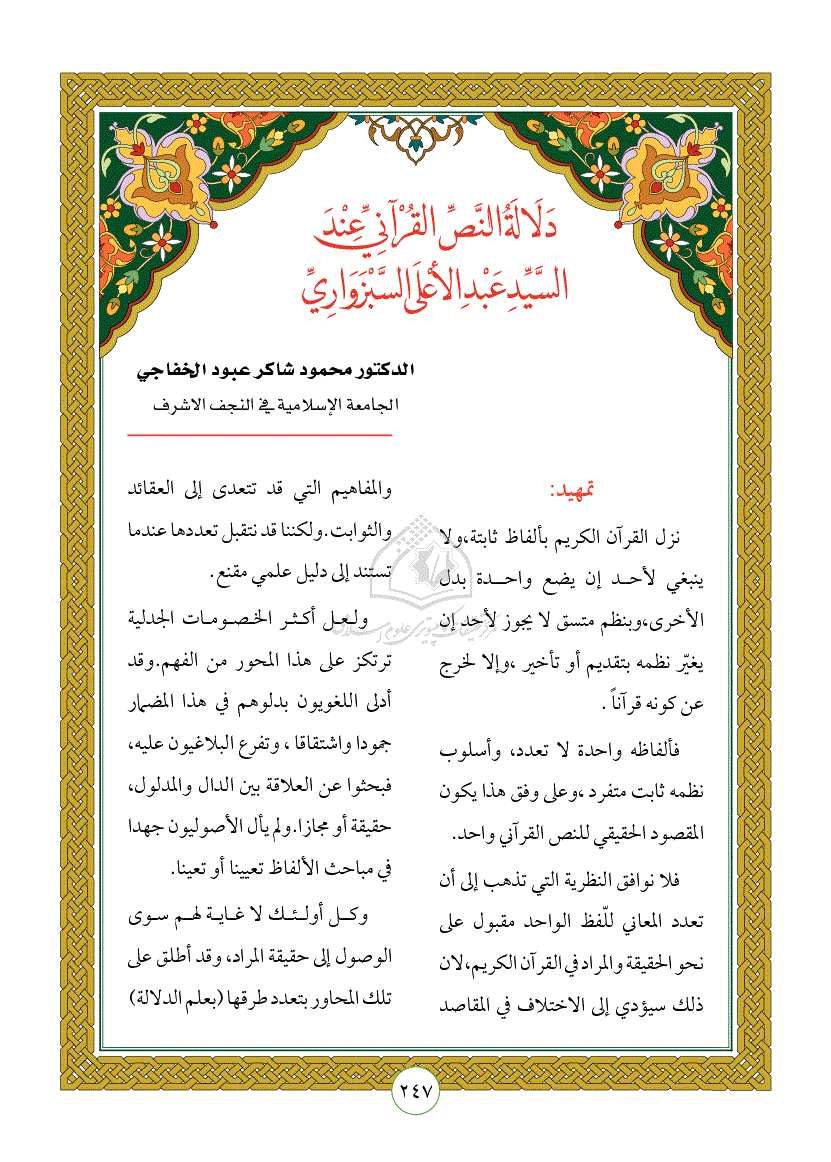 دَلَالَةُ النَّصِّ القُرْآنِيِّ عِنْدَ
السَّيِّدِ عَبْدِ الأَعْلَى السَّبْزَوَارِيِّ
الدكتور محمود شاكر عبود الخفاجي
الجامعة الإسلامية في النجف الاشرف
تمهيد:
نزل القرآن الكريم بألفاظ ثابتة،ولا
ينبغي لأحد إن يضع واحدة بدل
الأخرى،وبنظم متسق لا يجوز لأحد إن
يغيّر نظمه بتقديم أو تأخير ،وإلا لخرج
عن كونه قرآناً .
فألفاظه واحدة لا تعدد، وأسلوب
نظمه ثابت متفرد ،وعلى وفق هذا يكون
المقصود الحقيقي للنص القرآني واحد.
فلا نوافق النظرية التي تذهب إلى أن
تعدد المعاني للّفظ الواحد مقبول على
نحو الحقيقة والمراد في القرآن الكريم،لان
ذلك سيؤدي إلى الاختلاف في المقاصد
والمفاهيم التي قد تتعدى إلى العقائد
والثوابت.ولكننا قد نتقبل تعددها عندما
تستند إلى دليل علمي مقنع.
ولعل أكثر الخصومات الجدلية
ترتكز على هذا المحور من الفهم.وقد
أدلى اللغويون بدلوهم في هذا المضمار
جمودا واشتقاقا ، وتفرع البلاغيون عليه،
فبحثوا عن العلاقة بين الدال والمدلول،
حقيقة أو مجازا.ولم يأل الأصوليون جهدا
في مباحث الألفاظ تعيينا أو تعينا.
وكل أولئك لا غاية لهم سوى
الوصول إلى حقيقة المراد، وقد أطلق على
تلك المحاور بتعدد طرقها (بعلم الدلالة)
٢٤٧